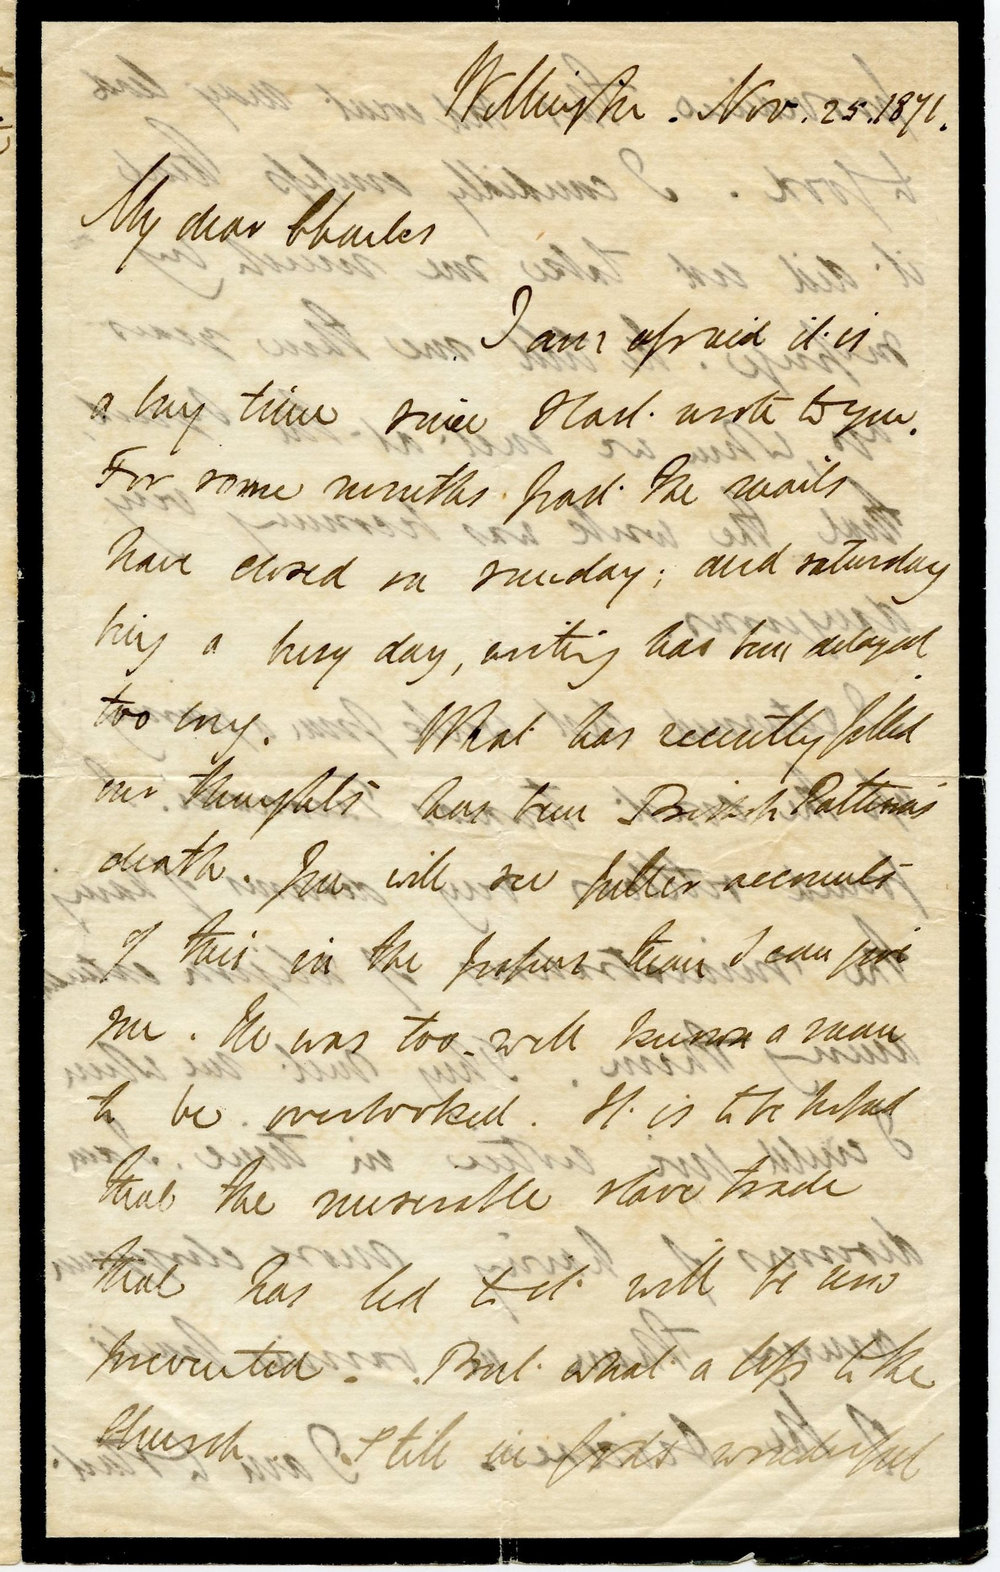 Wellington. Nov. 25. 1871.
My dear Charles
I am afraid it is
a long time since I last wrote to you.
For some months past the mails
have closed on sunday; and saturday
being a busy day, writing has been delayed
too long. What has recently filled
our thoughts has been Bishop Patteson's
death. You will see fuller accounts
of this in the papers than I can give
you. He was too well known a man
to be overlooked. It is to be hoped
that the miserable slave trade
that has led to it will be now
prevented. But what a loss to the
Church. Still in God's wonderful